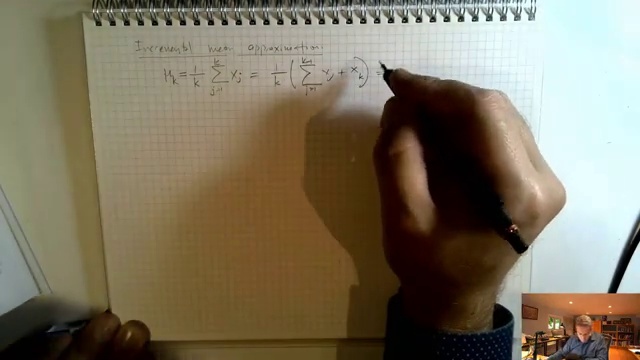 Incremental mean approximation:
μ_k = 1/k ∑_{j=1}^{k} x_j = 1/k ( ∑_{j=1}^{k-1} x_j + x_k ) =